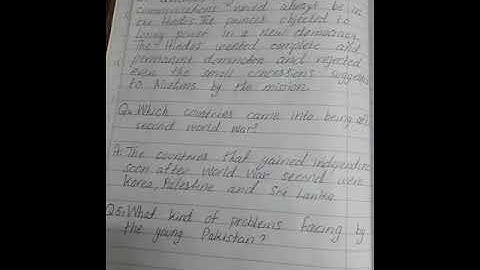 communications would always be in
the Hindus. The princes objected to
losing power in a new democracy.
The Hindus wanted complete and
permanent domination and rejected
even the small concessions suggested
to Muslims by the mission.
Q4. Which countries came into being
second world war?
A: The countries that gained
soon after World War second were
Korea, Palestine and Sri Lanka.
Q5: What kind of problems facing by
the young Pakistan?